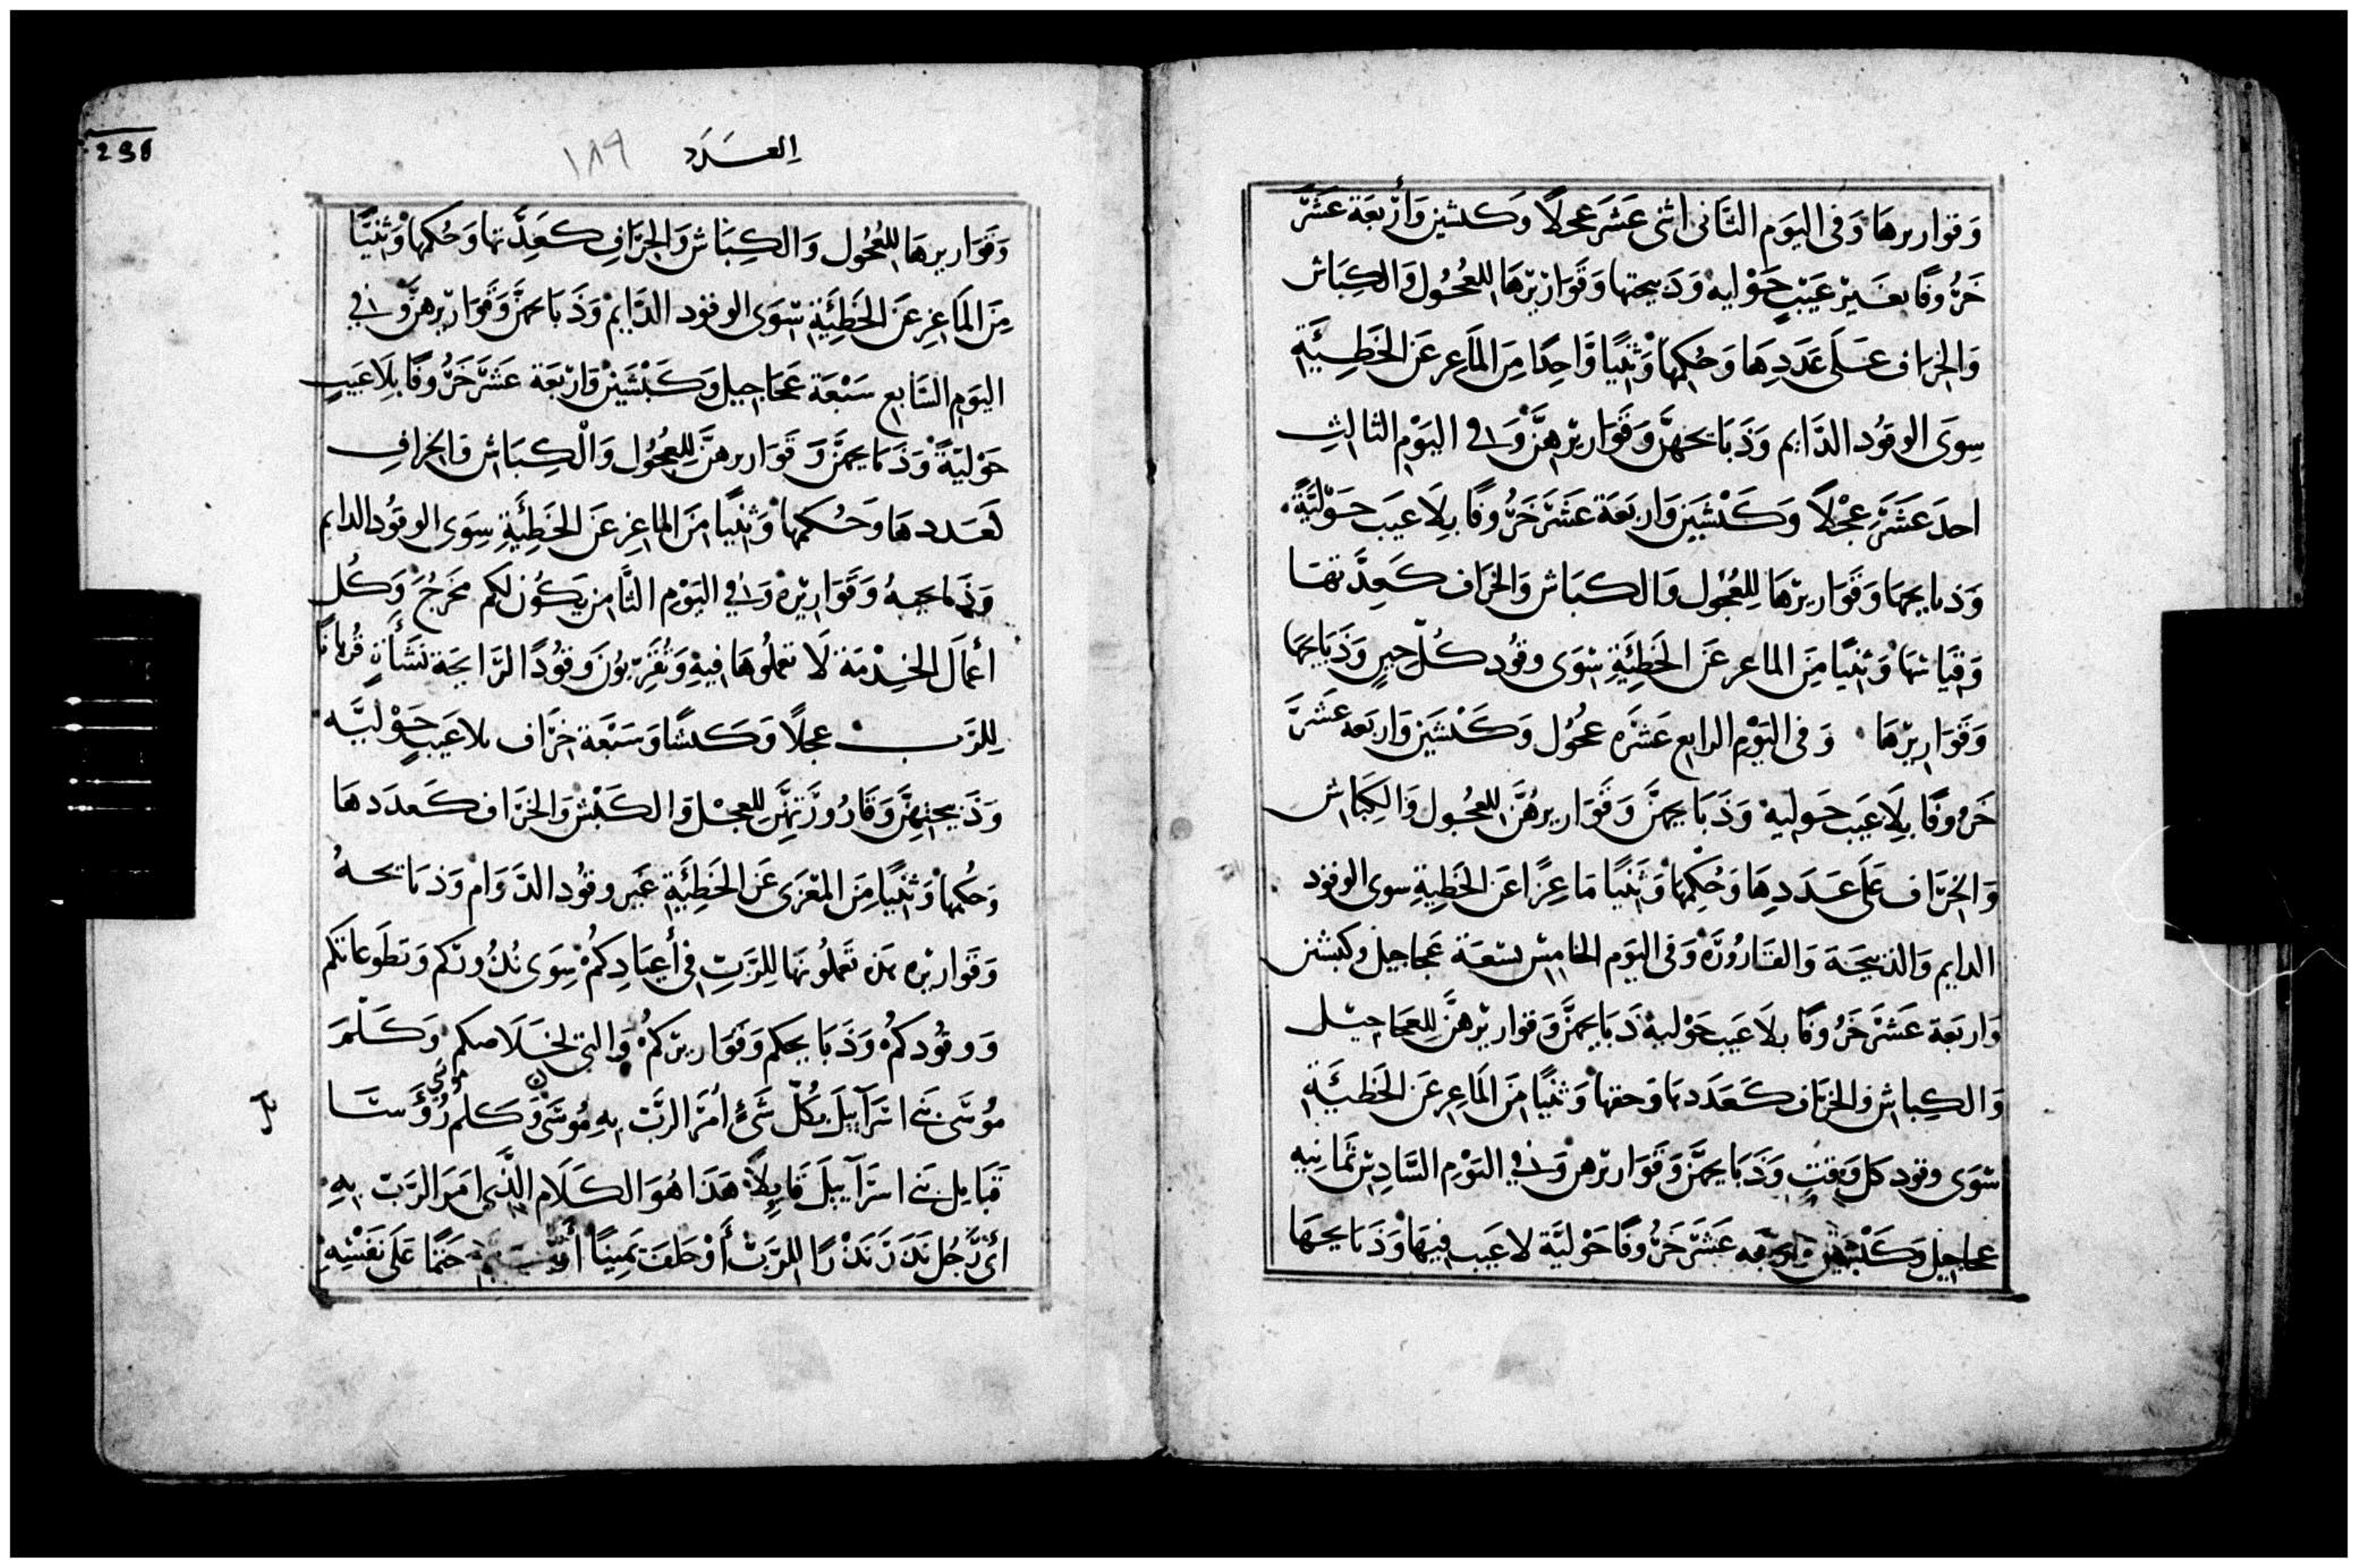 وَقواريرهَا وَفى اليَوم الثَّانى اثنى عَشَرَ عجلًا وَكبشين وَأربعَة عَشَرَ
خَرُوفًا بغَيرْ عَيْبٍ حَوْليه وَدَبيحتها وَقَوَاريْرهَا للعُجُول وَالكِبَاش
وَالخرَاف عَلَى عَدَدِهَا وَحُكمِها وَثنيًا وَاحِدًا مِنَ المَاعِر عَن الخَطِيئَةِ
سِوَى الوقوُد الدَّايم وَذَبَايحَهنَّ وَقَوَاريْرهِنَّ وَفى اليَوْمِ الثالثِ
احدَ عَشَرَ عِجْلًا وَكَبْشَينِ وَاربَعَة عَشَرَ خَرُوفًا بِلَا عَيب حَوْليَّةً
وَذبايحهَا وَقَوَاريرْهَا لِلعُجُول وَالكبَاش وَالخرَاف كَعِدَّتهَا
وَقيَاسهَا وَثنيًا مِنَ الماعر عَنَ الخَطِئَةِ سِوَى وقوُد كُلّ حِينٍ وَذَبَايحهَا
وَقَوَاريرْهَا وَفى اليَوْمِ الرابع عَشَره عُجُوُل وَكَبْشَين وَاربَعه عَشَرَ
خَرُوفًا بِلَا عَيب حَوليه وَذَبَايحهنَّ وَقَوَاريرهُنَّ للعُجُول وَالكِبَاش
وَالخرَاف عَلَى عَدَدِهَا وَحُكِمهَا وَثَنيًا مَاعِزًا عَن الخَطِيةِ سوى الوقود
الدايم وَالذبيحَة وَالقَارُورَة وَفى اليَوم الخَامِسْ تسْعَة عَجَاجيل وكبشين
وَاربَعة عَشَرَ خَرُوفًا بلَا عَيب حَوْليه ذَبَايحهنَّ وَقواريرْهنَّ لِلعَجَاجيل
وَالكِبَاش وَالخرَاف كَعَدَدهَا وَحقهَا وَثنيًا مِنَ المَاعِر عَنَ الخَطيئَةِ
سْوَى وقود كل وَقتٍ وَذَبَايحهنَّ وَقَوَاريرْهن وَفي اليَوْمِ السَّادِسْ ثَمَانيه
عجاجيل وَكَبْشَيْن وَاربَعَه عَشَرَ خَرُوفًا حَوْليَّة لَاعَيب فيهَا وَذَبَايحَهَا
236
العَدَد ١٨٩
وَقَوَاريرهَا للعُجُول وَالكِبَاش وَالخرَافِ كَعِدَّتهَا وَحُكمِها وَثنيًا
مِنَ المَاعِز عَنَ الخَطِئَةِ سْوَى الوقود الدَّايم وَذَبَايحهنَّ وَقَوَاريرهنَّ وَفي
اليَومِ السَّابع سَبْعَة عَجَاجيل وَكَبْشَينْ وَاربَعَة عَشَرَ خَرُوفًا بِلَا عَيبٍ
حَوْليّةً وَذَبَايحهنَّ وَقَوَاريرهنَّ لِلعُجُول وَالْكِبَاش وَالخرافِ
كَعَدَدهَا وَحُكمِها وَثنيًا مِنَ الماعِز عَنَ الخَطِئَةِ سِوَى الوقوُد الدايم
وَذَبايحهُ وَقَوَاريْرهْ وَفي اليَوْم الثَّامن يَكوُن لكم مَخرَجُ وَكُل
أعمَالَ الخِدْمَة لَا تعملوُهَا فيهِ وَتُقرّبوُنَ وقوُدًا لرَايحَة نَشَأَةٍ قُربانًا
لِلرَبِ عجلًا وَكَبشًا وَسَبْعَة خرَاف بلا عَيبٍ حَوْليَّه
وَذَبيحَتِهنَّ وَقَارُورَتهنَّ لِلعجْل وَالكَبْش وَالخرَاف كَعدَدهَا
وَحُكمها وَثنيًا مِنَ المَعْزى عَن الخَطِئَةِ غَير وقوُد الدَوَام وَذبَايحهُ
وَقَواريْره هَذه تَعملوُنهَا لِلرَّبِ فى أعيَادِكمُ سِوَى نُذُورِكم وَتطَوعَاتكم
وَوقوُدكمُ وَذَبَايحكم وَقَوَاريْركمُ وَالتى لخَلَاصكم وَكَلَّمَ
مُوُسَى بَني اسْرَآييلَ بكُلّ شَيء أمَرَ الرَّبْ بِهِ مُوُسَى وَكلم مُوُسَى رُؤَسَا
قَبَايل بَني اسرَآييلَ قَايِلًا هَذَا هُوَ الكَلَام الَّذِي امَرَ الرَبّ بِهِ
أىّ رَّجُل نَذَرَ نَذْرًا للرَبّ أَوْ حَلَفَ يَمِينًا حَتمًا عَلَى نَفْسِهِ